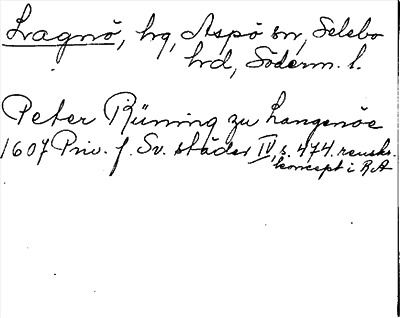 Lragnö, hg, Aspö sn, Selebo
hd, Söderm. l.
Peter Rüning zu Langenöe
1607 Priv. f. Sv. städer IV, s. 474. renskr.
koncept i RA